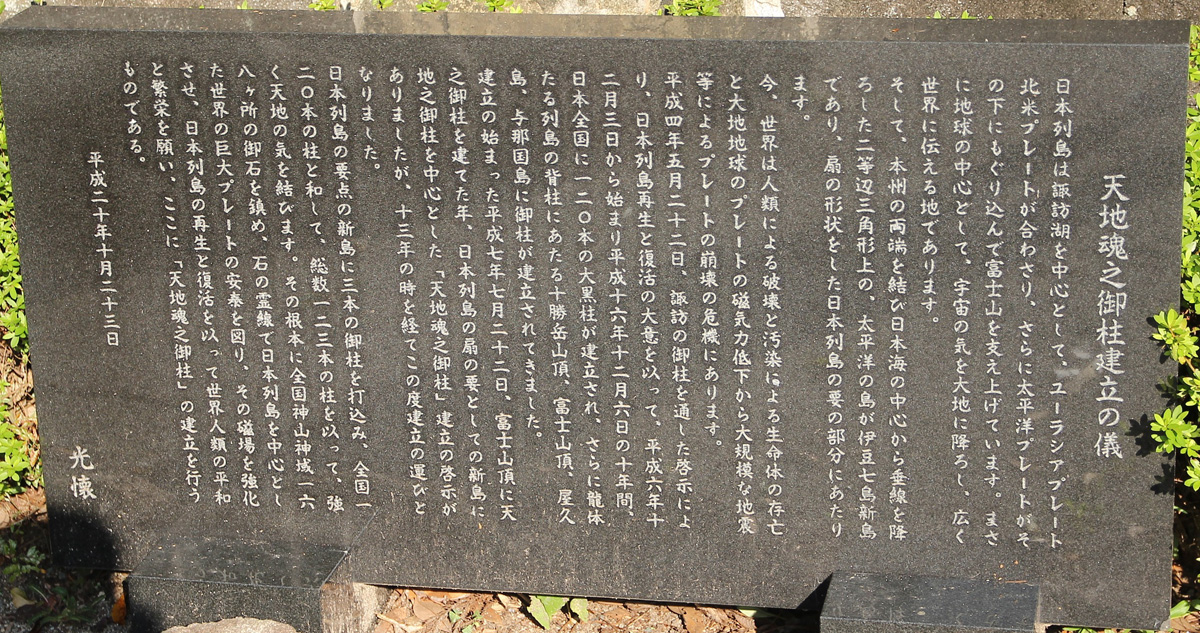 天地魂之御柱建立の儀
日本列島は諏訪湖を中心として、ユーラシアプレート
北米プレートが合わさり、さらに太平洋プレートがそ
の下にもぐり込んで富士山を支え上げています。まさ
に地球の中心として、宇宙の気を大地に降ろし、広く
世界に伝える地であります。
そして、本州の両端を結び日本海の中心から垂線を降
ろした二等辺三角形上の、太平洋の島が伊豆七島新島
であり、扇の形状をした日本列島の要の部分にあたり
ます。
今、世界は人類による破壊と汚染による生命体の存亡
と大地地球のプレートの磁気力低下から大規模な地震
等によるプレートの崩壊の危機にあります。
平成四年五月二十二日、諏訪の御柱を通した啓示によ
り、日本列島再生と復活の大意を以って、平成六年十
二月三日から始まり平成十六年十二月六日の十年間、
日本全国に一二〇本の大黒柱が建立され、さらに龍体
たる列島の背柱にあたる十勝岳山頂、富士山頂、屋久
島、与那国島に御柱が建立されてきました。
建立の始まった平成七年七月二十二日、富士山頂に天
之御柱を建てた年、日本列島の扇の要としての新島に
地之御柱を中心とした「天地魂之御柱」建立の啓示が
ありましたが、十三年の時を経てこの度建立の運びと
なりました。
日本列島の要点の新島に三本の御柱を打込み、全国一
二〇本の柱と和して、総数一二三本の柱を以って、強
く天地の気を結びます。その根本に全国神山神域一六
八ヶ所の御石を鎮め、石の霊線で日本列島を中心とし
た世界の巨大プレートの安泰を図り、その磁場を強化
させ、日本列島の再生と復活を以って世界人類の平和
と繁栄を願い、ここに「天地魂之御柱」の建立を行う
ものである。
平成二十年十月二十三日
光懐